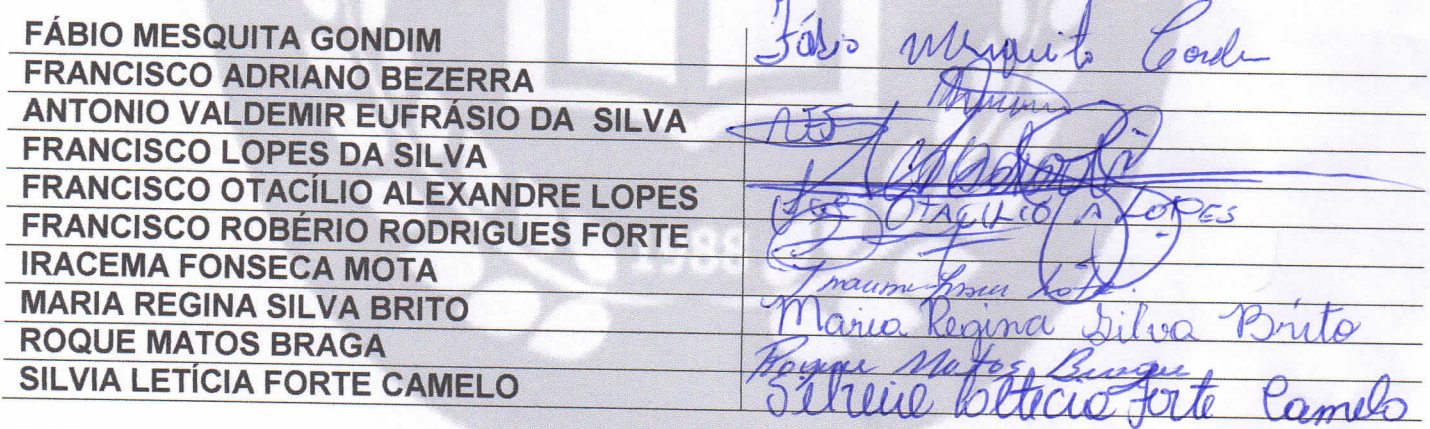 FÁBIO MESQUITA GONDIM Fábio Mesquita
FRANCISCO ADRIANO BEZERRA
ANTONIO VALDEMIR EUFRÁSIO DA SILVA
FRANCISCO LOPES DA SILVA
FRANCISCO OTACÍLIO ALEXANDRE LOPES OTACILIO A LOPES
FRANCISCO ROBÉRIO RODRIGUES FORTE
IRACEMA FONSECA MOTA
MARIA REGINA SILVA BRITO Maria Regina Silva Brito
ROQUE MATOS BRAGA Roque Matos Braga
SILVIA LETÍCIA FORTE CAMELO Forte Camelo